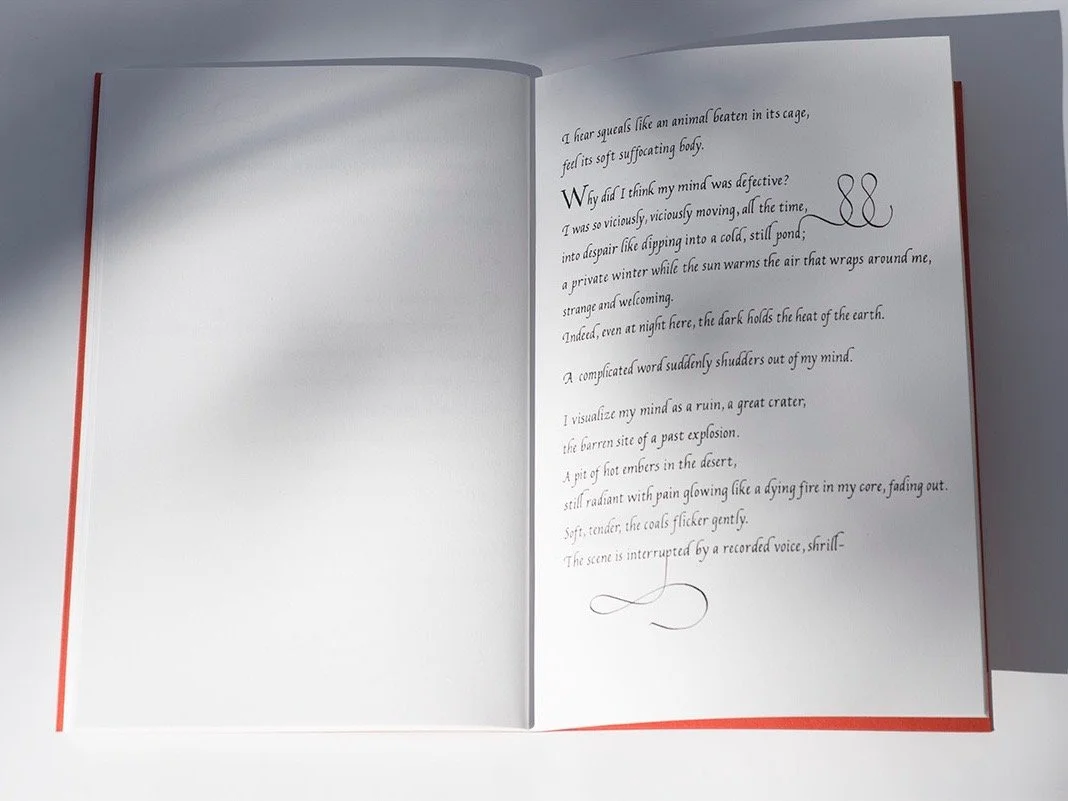 I hear squeals like an animal beaten in its cage,
feel its soft suffocating body.
Why did I think my mind was defective?
I was so viciously, viciously moving, all the time,
into despair like dipping into a cold, still pond;
a private winter while the sun warms the air that wraps around me,
strange and welcoming.
Indeed, even at night here, the dark holds the heat of the earth.
A complicated word suddenly shudders out of my mind.
I visualize my mind as a ruin, a great crater,
the barren site of a past explosion.
A pit of hot embers in the desert,
still radiant with pain glowing like a dying fire in my core, fading out.
Soft, tender, the coals flicker gently.
The scene is interrupted by a recorded voice, shrill-